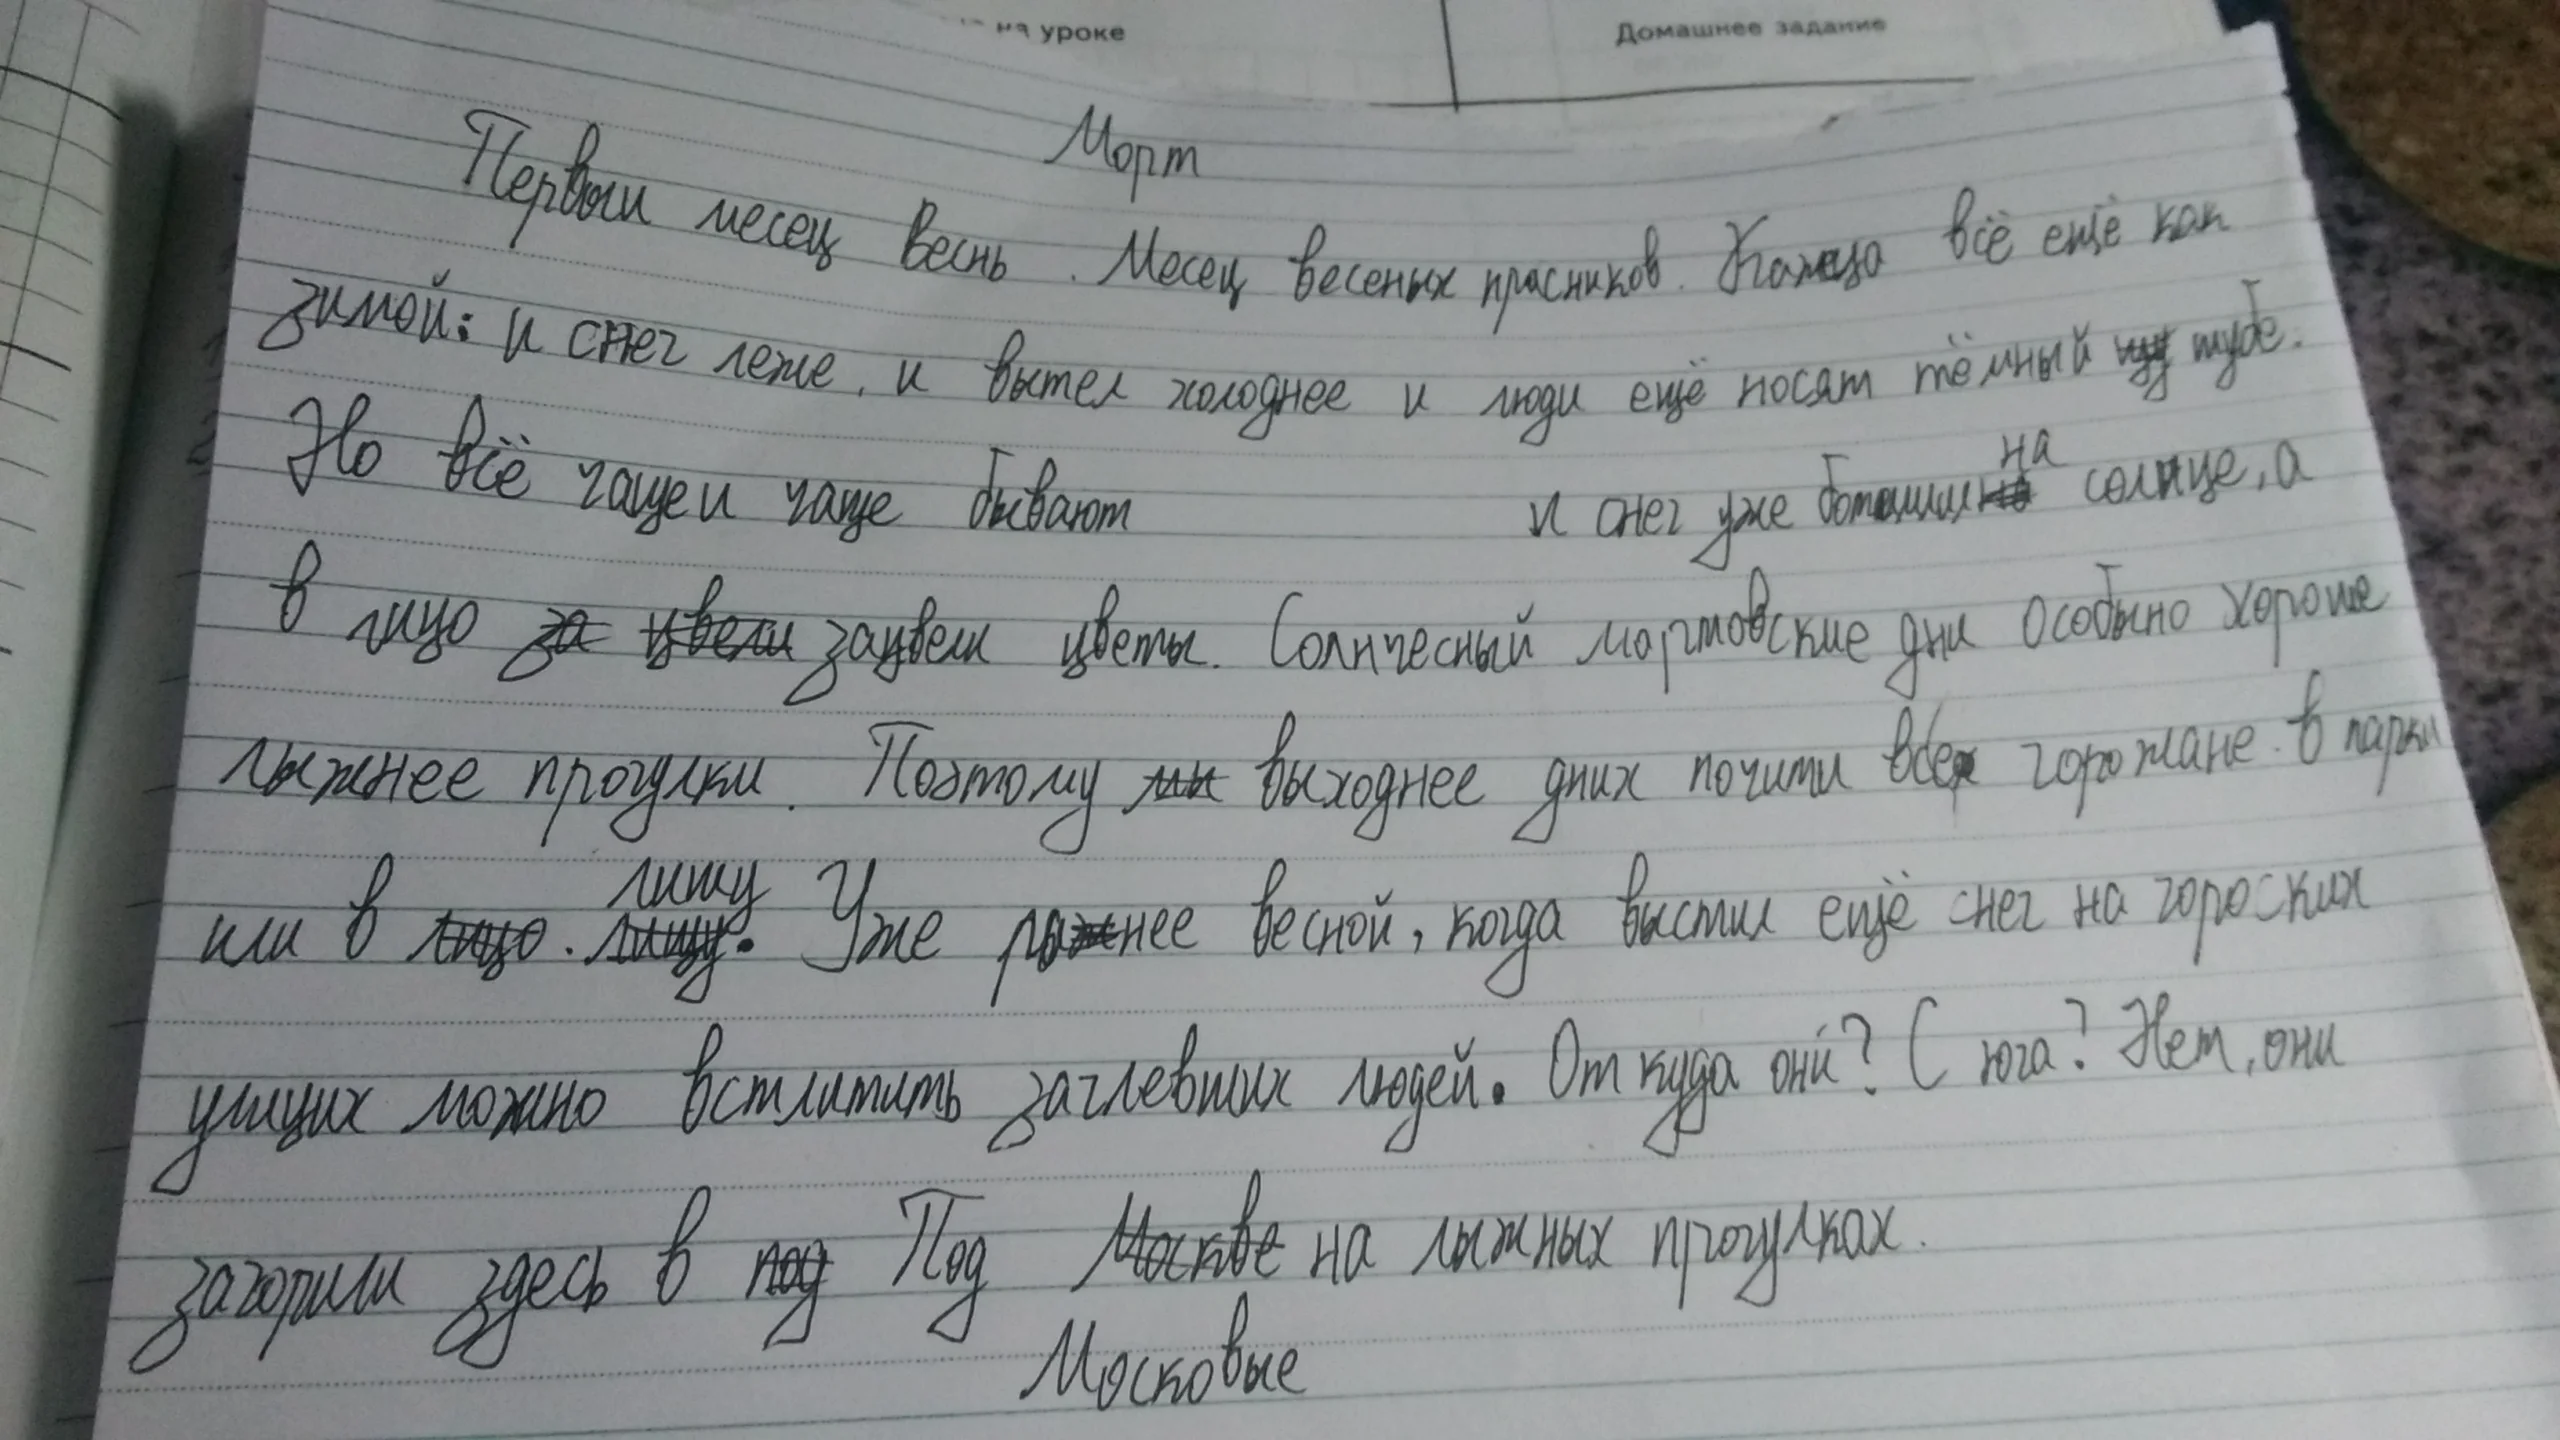 на уроке
Домашнее задание
Морт
Первыи месец веснь. Месец весеных прасников. Кажеца всё ещё как
зимой: и снег леже, и вытел холоднее и люди ещё носят тёмный шубе.
Но всё чащеи чаще бывают и снег уже на солнце, а
в лицо за цвели зацвели цветы. Солнчесный мортовские дни особыно хороше
лыжнее прогулки. Поэтому выходнее дних почити всех горожане в парки
или в лицо. лишу. лишу Уже рыжнее весной, когда выстил ещё снег на гороских
улицих можно встлитить заглевших людей. От куда они? С юга? Нет, они
загорили здесь в под Под Москве на лыжных прогулках.
Московые